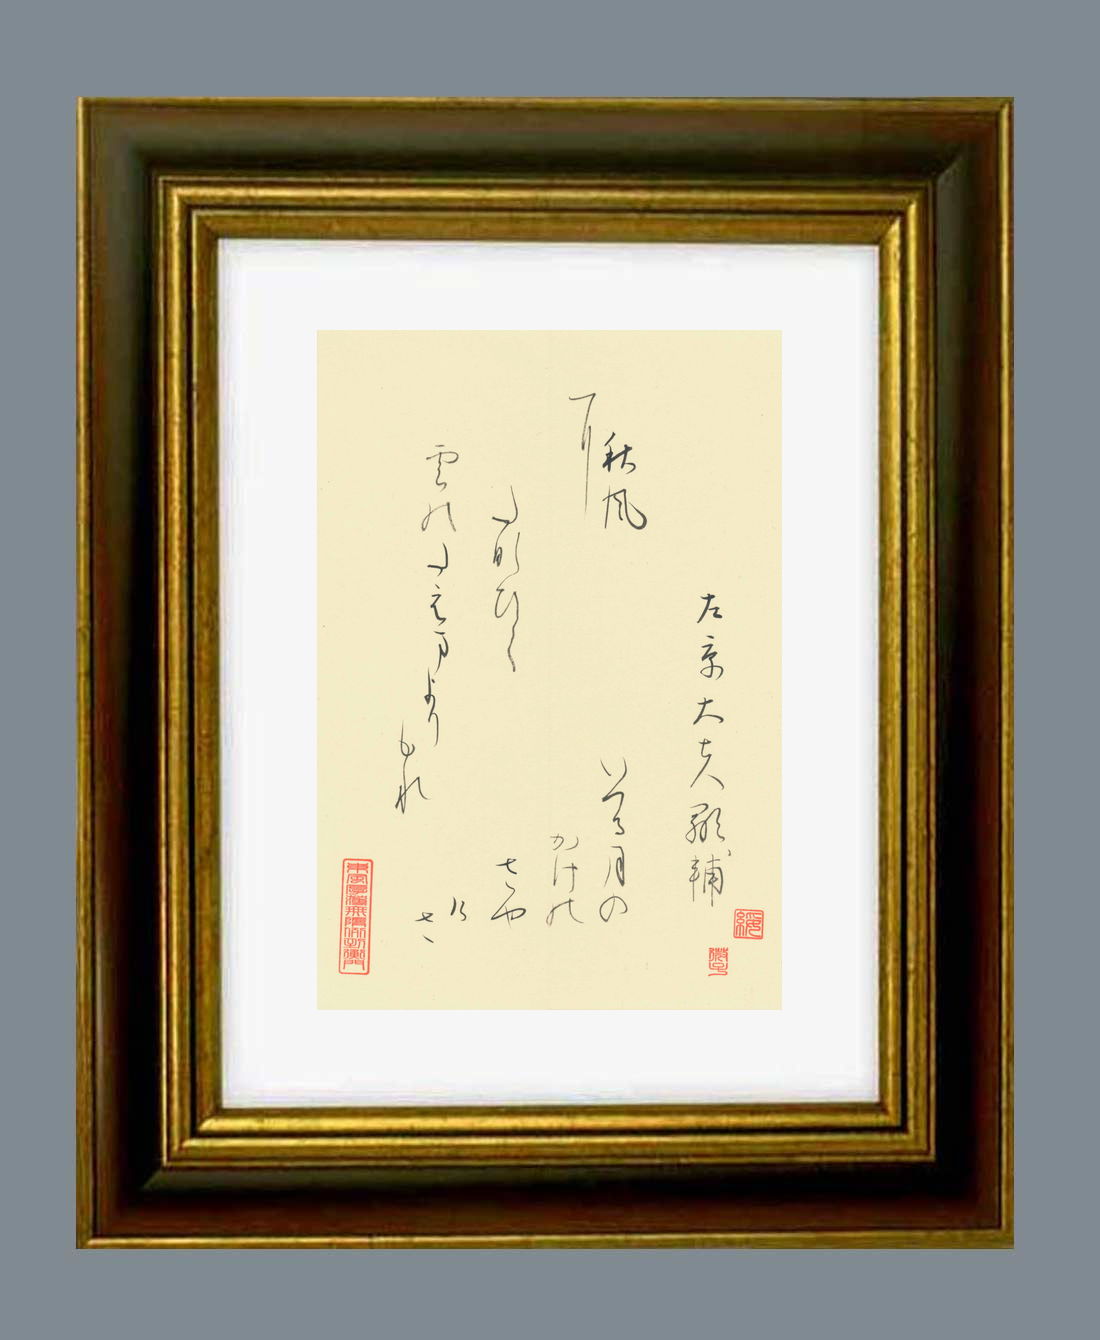 左京大夫顕輔
秋風
に
たなひく
雲のたえまより
もれ
いつる月の
かけの
さや
けさ